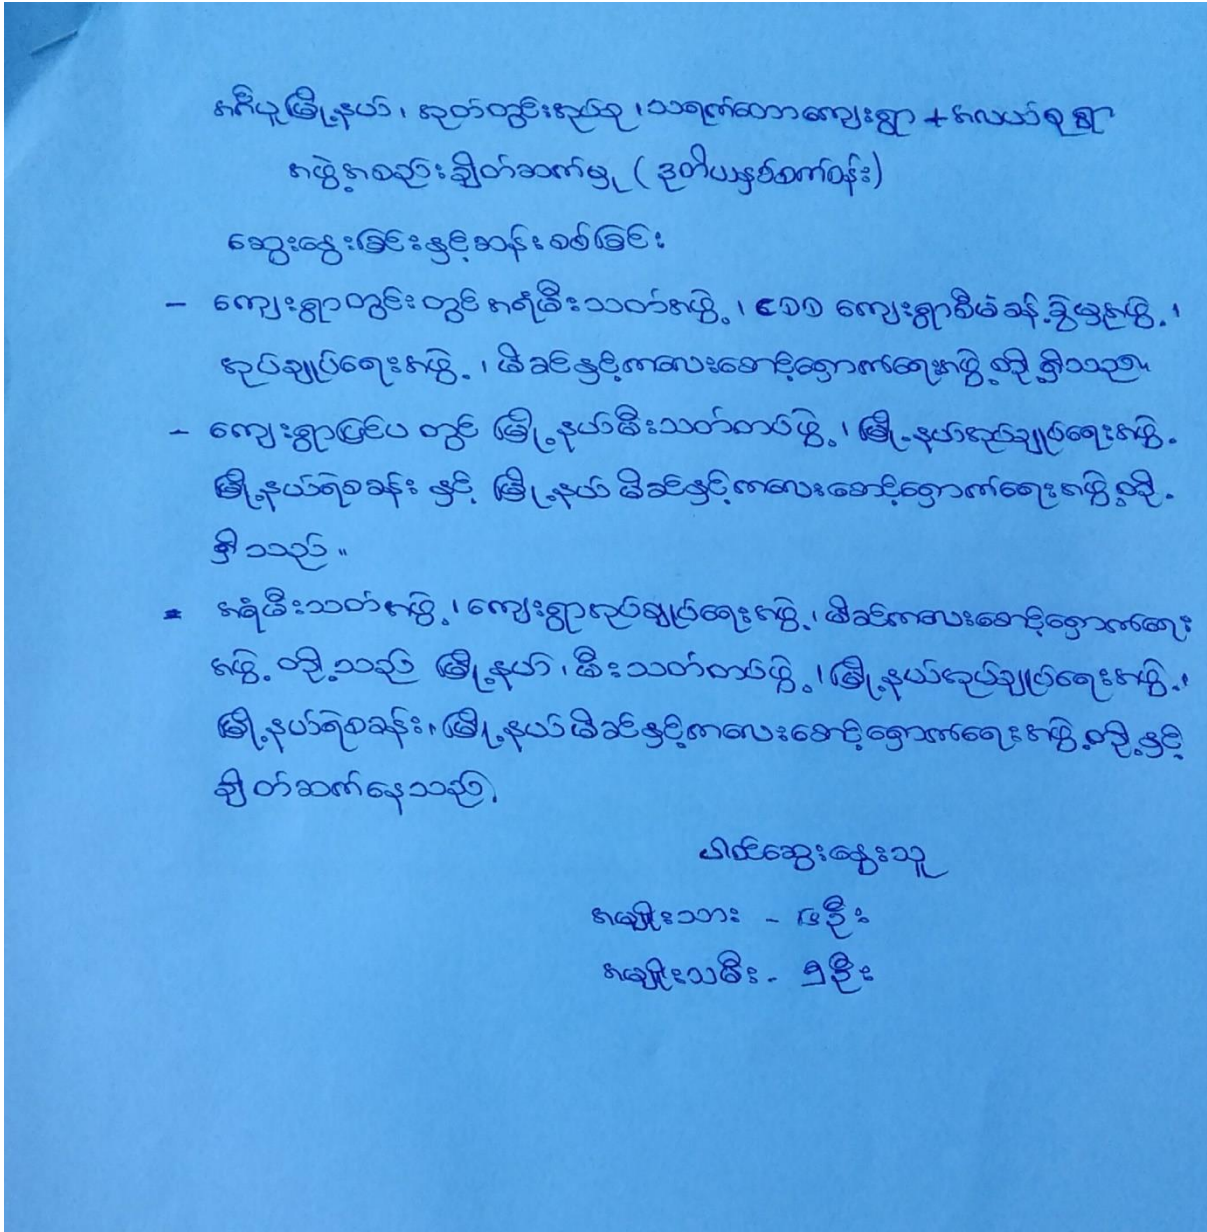 အင်္ဂပူမြို့နယ်၊ အုတ်တွင်းအုပ်စု၊ သရက်တောကျေးရွာ + အလယ်စုရွာ
အဖွဲ့အစည်းချိတ်ဆက်မှု (ဒုတိယနှစ်စက်ဝန်း)
ဆွေးနွေးခြင်းနှင့်ဆန်းစစ်ခြင်း
- ကျေးရွာတွင်းတွင် အရံမီးသတ်အဖွဲ့၊ CDD ကျေးရွာစီမံခန့်ခွဲမှုအဖွဲ့၊
အုပ်ချုပ်ရေးအဖွဲ့၊ မိခင်နှင့်ကလေးစောင့်ရှောက်ရေးအဖွဲ့တို့ရှိသည်။
- ကျေးရွာပြင်ပတွင် မြို့နယ်မီးသတ်တပ်ဖွဲ့၊ မြို့နယ်အုပ်ချုပ်ရေးအဖွဲ့
မြို့နယ်ရဲစခန်း နှင့် မြို့နယ် မိခင်နှင့်ကလေးစောင့်ရှောက်ရေးအဖွဲ့တို့
ရှိသည်။
- အရံမီးသတ်အဖွဲ့၊ ကျေးရွာအုပ်ချုပ်ရေးအဖွဲ့၊ မိခင်ကလေးစောင့်ရှောက်ရေး
အဖွဲ့ တို့သည် မြို့နယ်၊ မီးသတ်တပ်ဖွဲ့၊ မြို့နယ်အုပ်ချုပ်ရေးအဖွဲ့၊
မြို့နယ်ရဲစခန်း၊ မြို့နယ်မိခင်နှင့်ကလေးစောင့်ရှောက်ရေးအဖွဲ့တို့နှင့်
ချိတ်ဆက်နေသည်.
ပါဝင်ဆွေးနွေးသူ
အမျိုးသား - ၆ဦး
အမျိုးသမီး - ၅ဦး